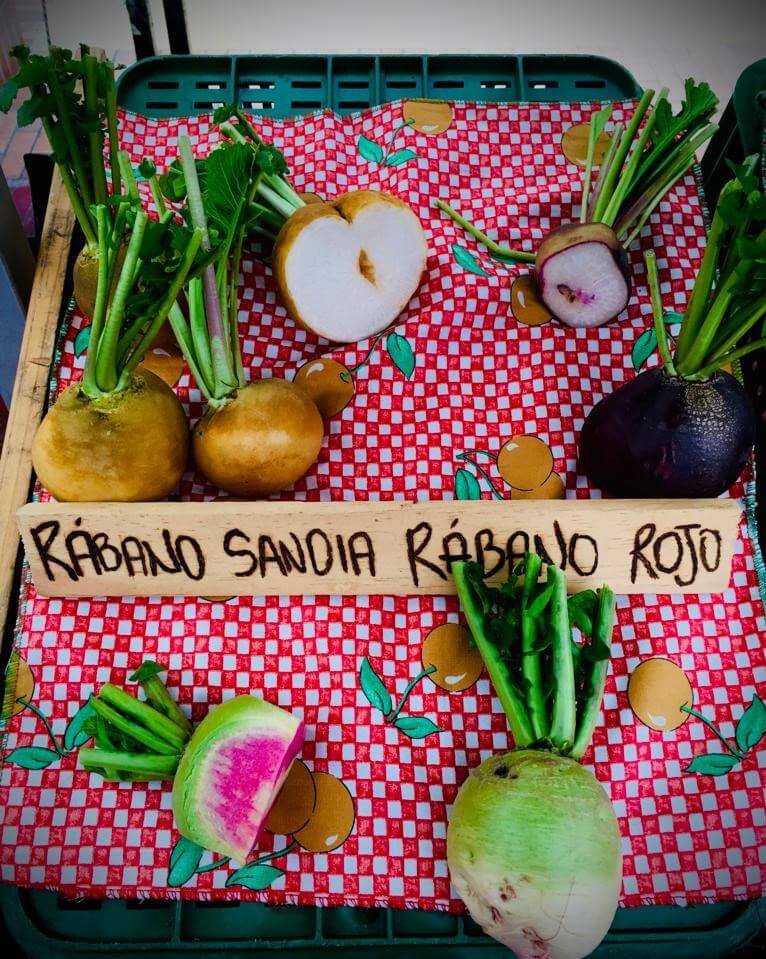 RÁBANO SANDIA RÁBANO ROJO